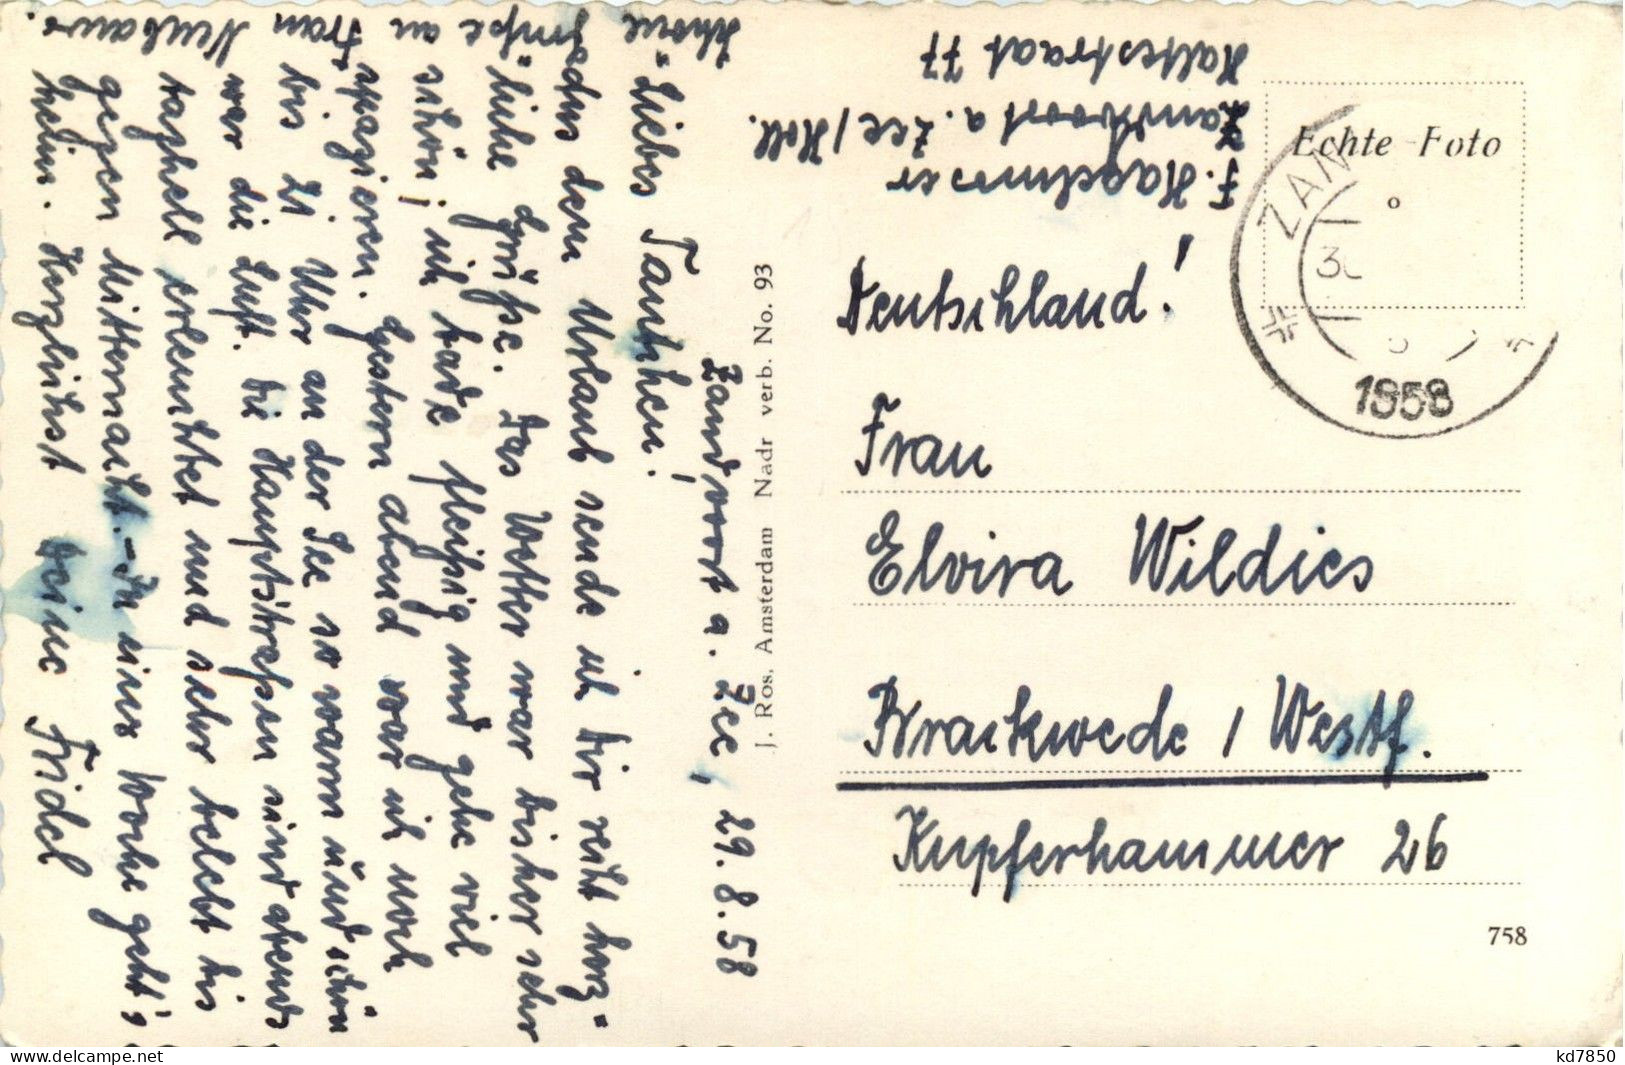 Zandvoort a. Zee, 29.8.58
Liebes Tantchen!
Aus dem Urlaub sende ich Dir recht herz=
liche Grüße. Das Wetter war bisher sehr
schön; ich bade fleißig und gehe viel
spazieren. Gestern abend war ich noch
bis 21 Uhr an der See so warm und schön
war die Luft. Die Hauptstraßen sind abends
taghell erleuchtet und sehr belebt bis
gegen Mitternacht. - In einer Woche geht's
heim. Herzlichst Deine Fridel
Schöne Grüße an Frau Neubauer
J. Ros. Amsterdam Nadr verb. No. 93
F. Hagelmoser
Zandvoort a. Zee / Holl.
Haltestraat 77
Echte Foto
ZAN
1958
Deutschland!
Frau
Elvira Wildies
Brackwede / Westf.
Kupferhammer 26
758
kd7850
www.delcampe.net